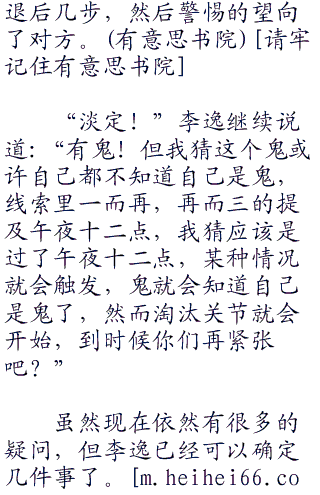 退后几步，然后警惕的望向
了对方。(有意思书院)[请牢
记住有意思书院]
“淡定！”李逸继续说
道：“有鬼！但我猜这个鬼或
许自己都不知道自己是鬼，
线索里一而再，再而三的提
及午夜十二点，我猜应该是
过了午夜十二点，某种情况
就会触发，鬼就会知道自己
是鬼了，然而淘汰关节就会
开始，到时候你们再紧张
吧？”
虽然现在依然有很多的
疑问，但李逸已经可以确定
几件事了。[m.heihei66.co